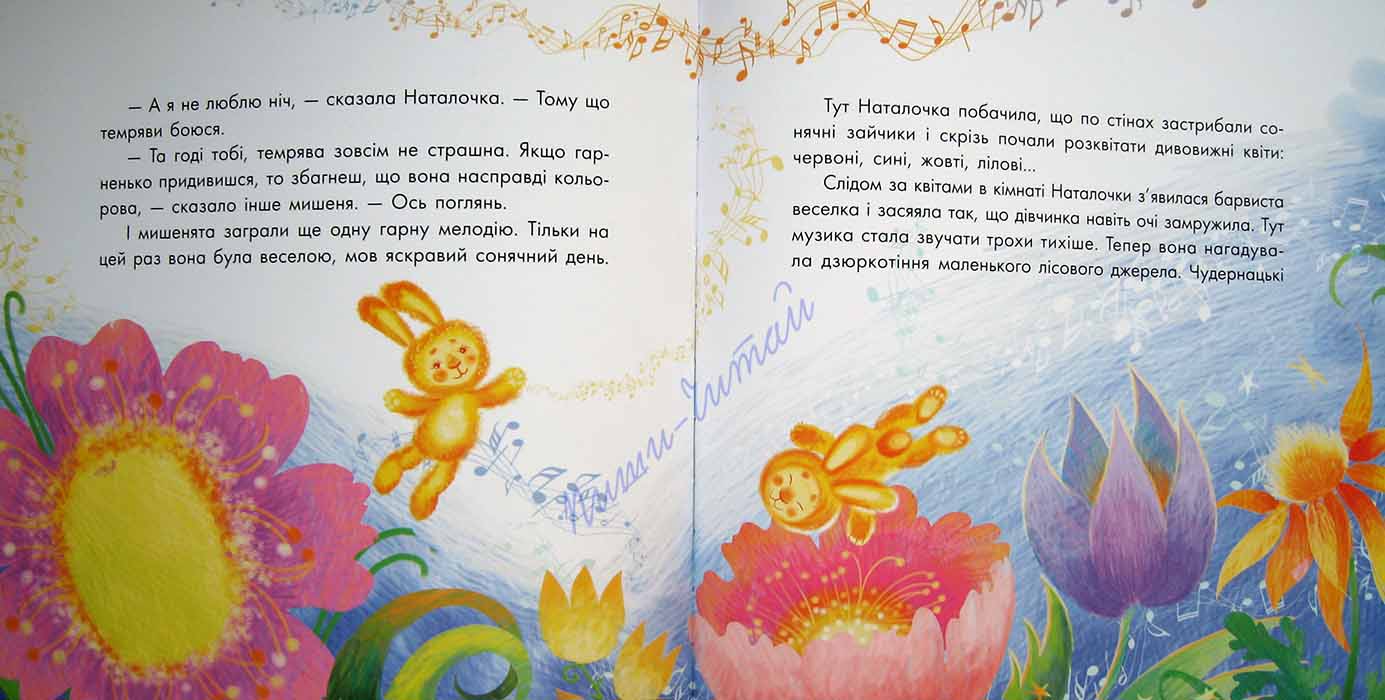 — А я не люблю ніч, — сказала Наталочка. — Тому що
темряви боюся.
— Та годі тобі, темрява зовсім не страшна. Якщо гар-
ненько придивишся, то збагнеш, що вона насправді кольо-
рова, — сказало інше мишеня. — Ось поглянь.
І мишенята заграли ще одну гарну мелодію. Тільки на
цей раз вона була веселою, мов яскравий сонячний день.
Тут Наталочка побачила, що по стінах застрибали со-
нячні зайчики і скрізь почали розквітати дивовижні квіти:
червоні, сині, жовті, лілові...
Слідом за квітами в кімнаті Наталочки з’явилася барвиста
веселка і засяяла так, що дівчинка навіть очі замружила. Тут
музика стала звучати трохи тихіше. Тепер вона нагадува-
ла дзюркотіння маленького лісового джерела. Чудернацькі
пиши-читай